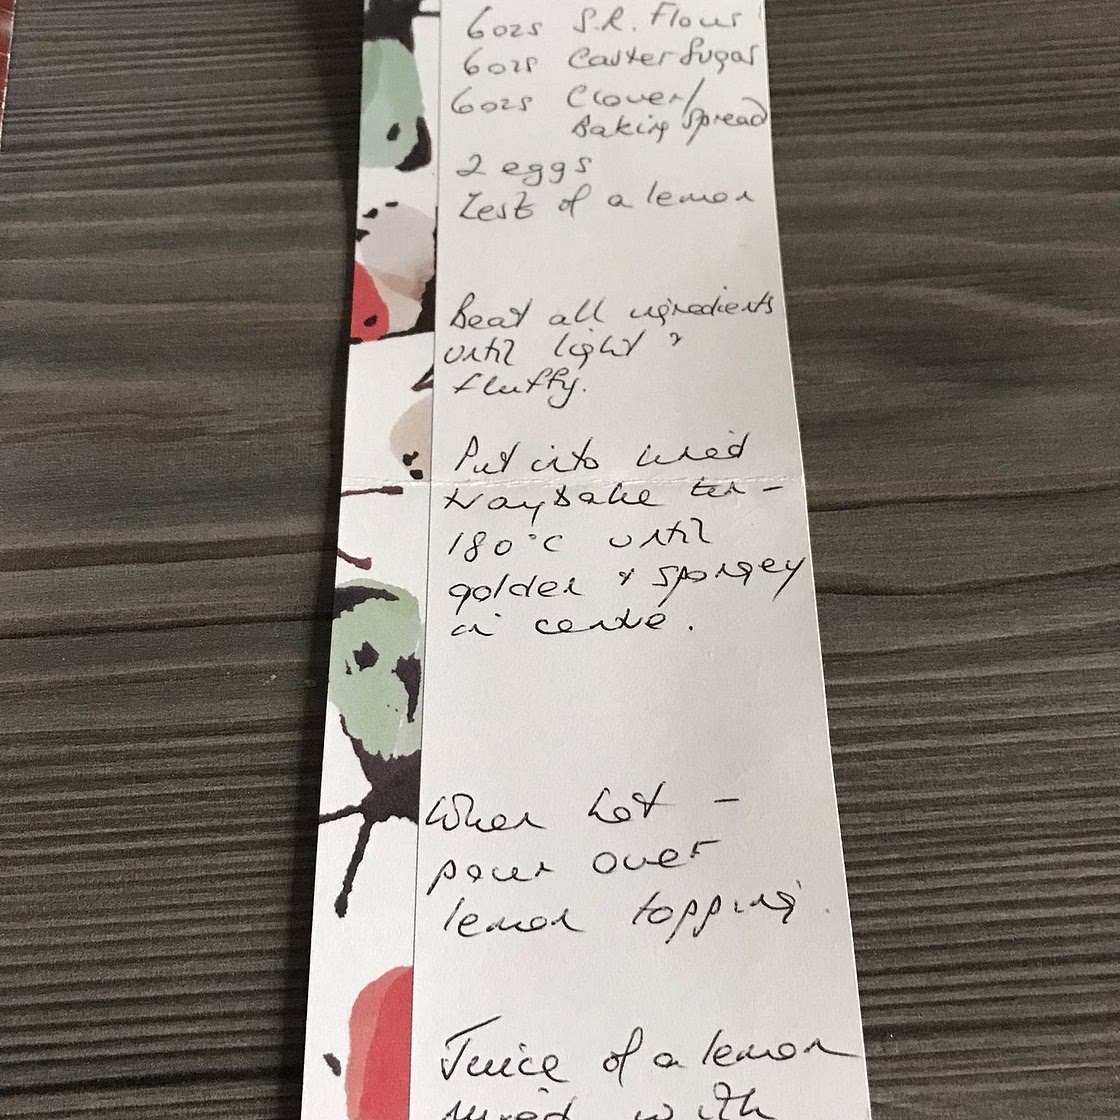 6ozs S.R. Flour
6ozs Caster Sugar
6ozs Clover/
Baking Spread
2 eggs
Zest of a lemon
Beat all ingredients
until light &
fluffy.
Put into lined
traybake tin -
180°C until
golden & spongey
in centre.
When hot -
pour over
lemon topping.
Juice of a lemon
mixed with